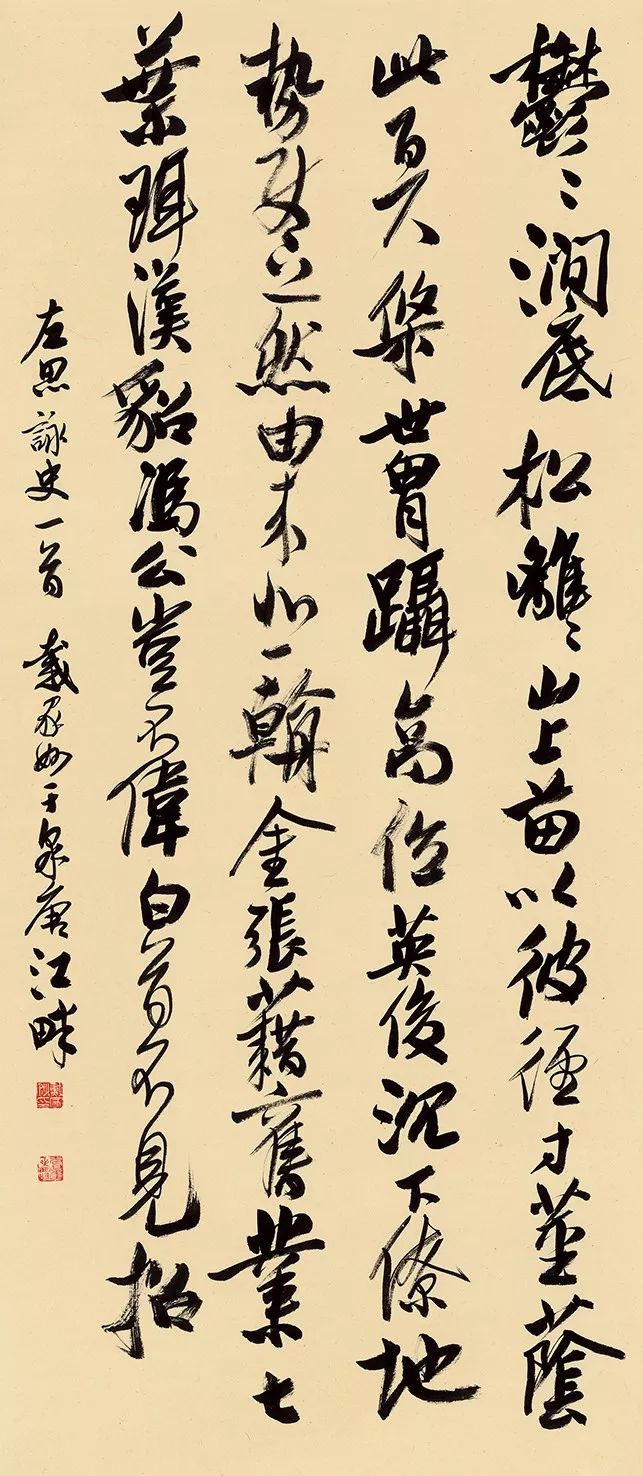 鬱〻澗底松離〻山上苗以彼徑寸莖蔭
此百尺條世胄躡高位英俊沉下僚地
勢使之然由来非一朝金張藉舊業七
葉珥漢貂馮公豈不偉白首不見招
左思詠史一首 戴家妙于泉唐江畔